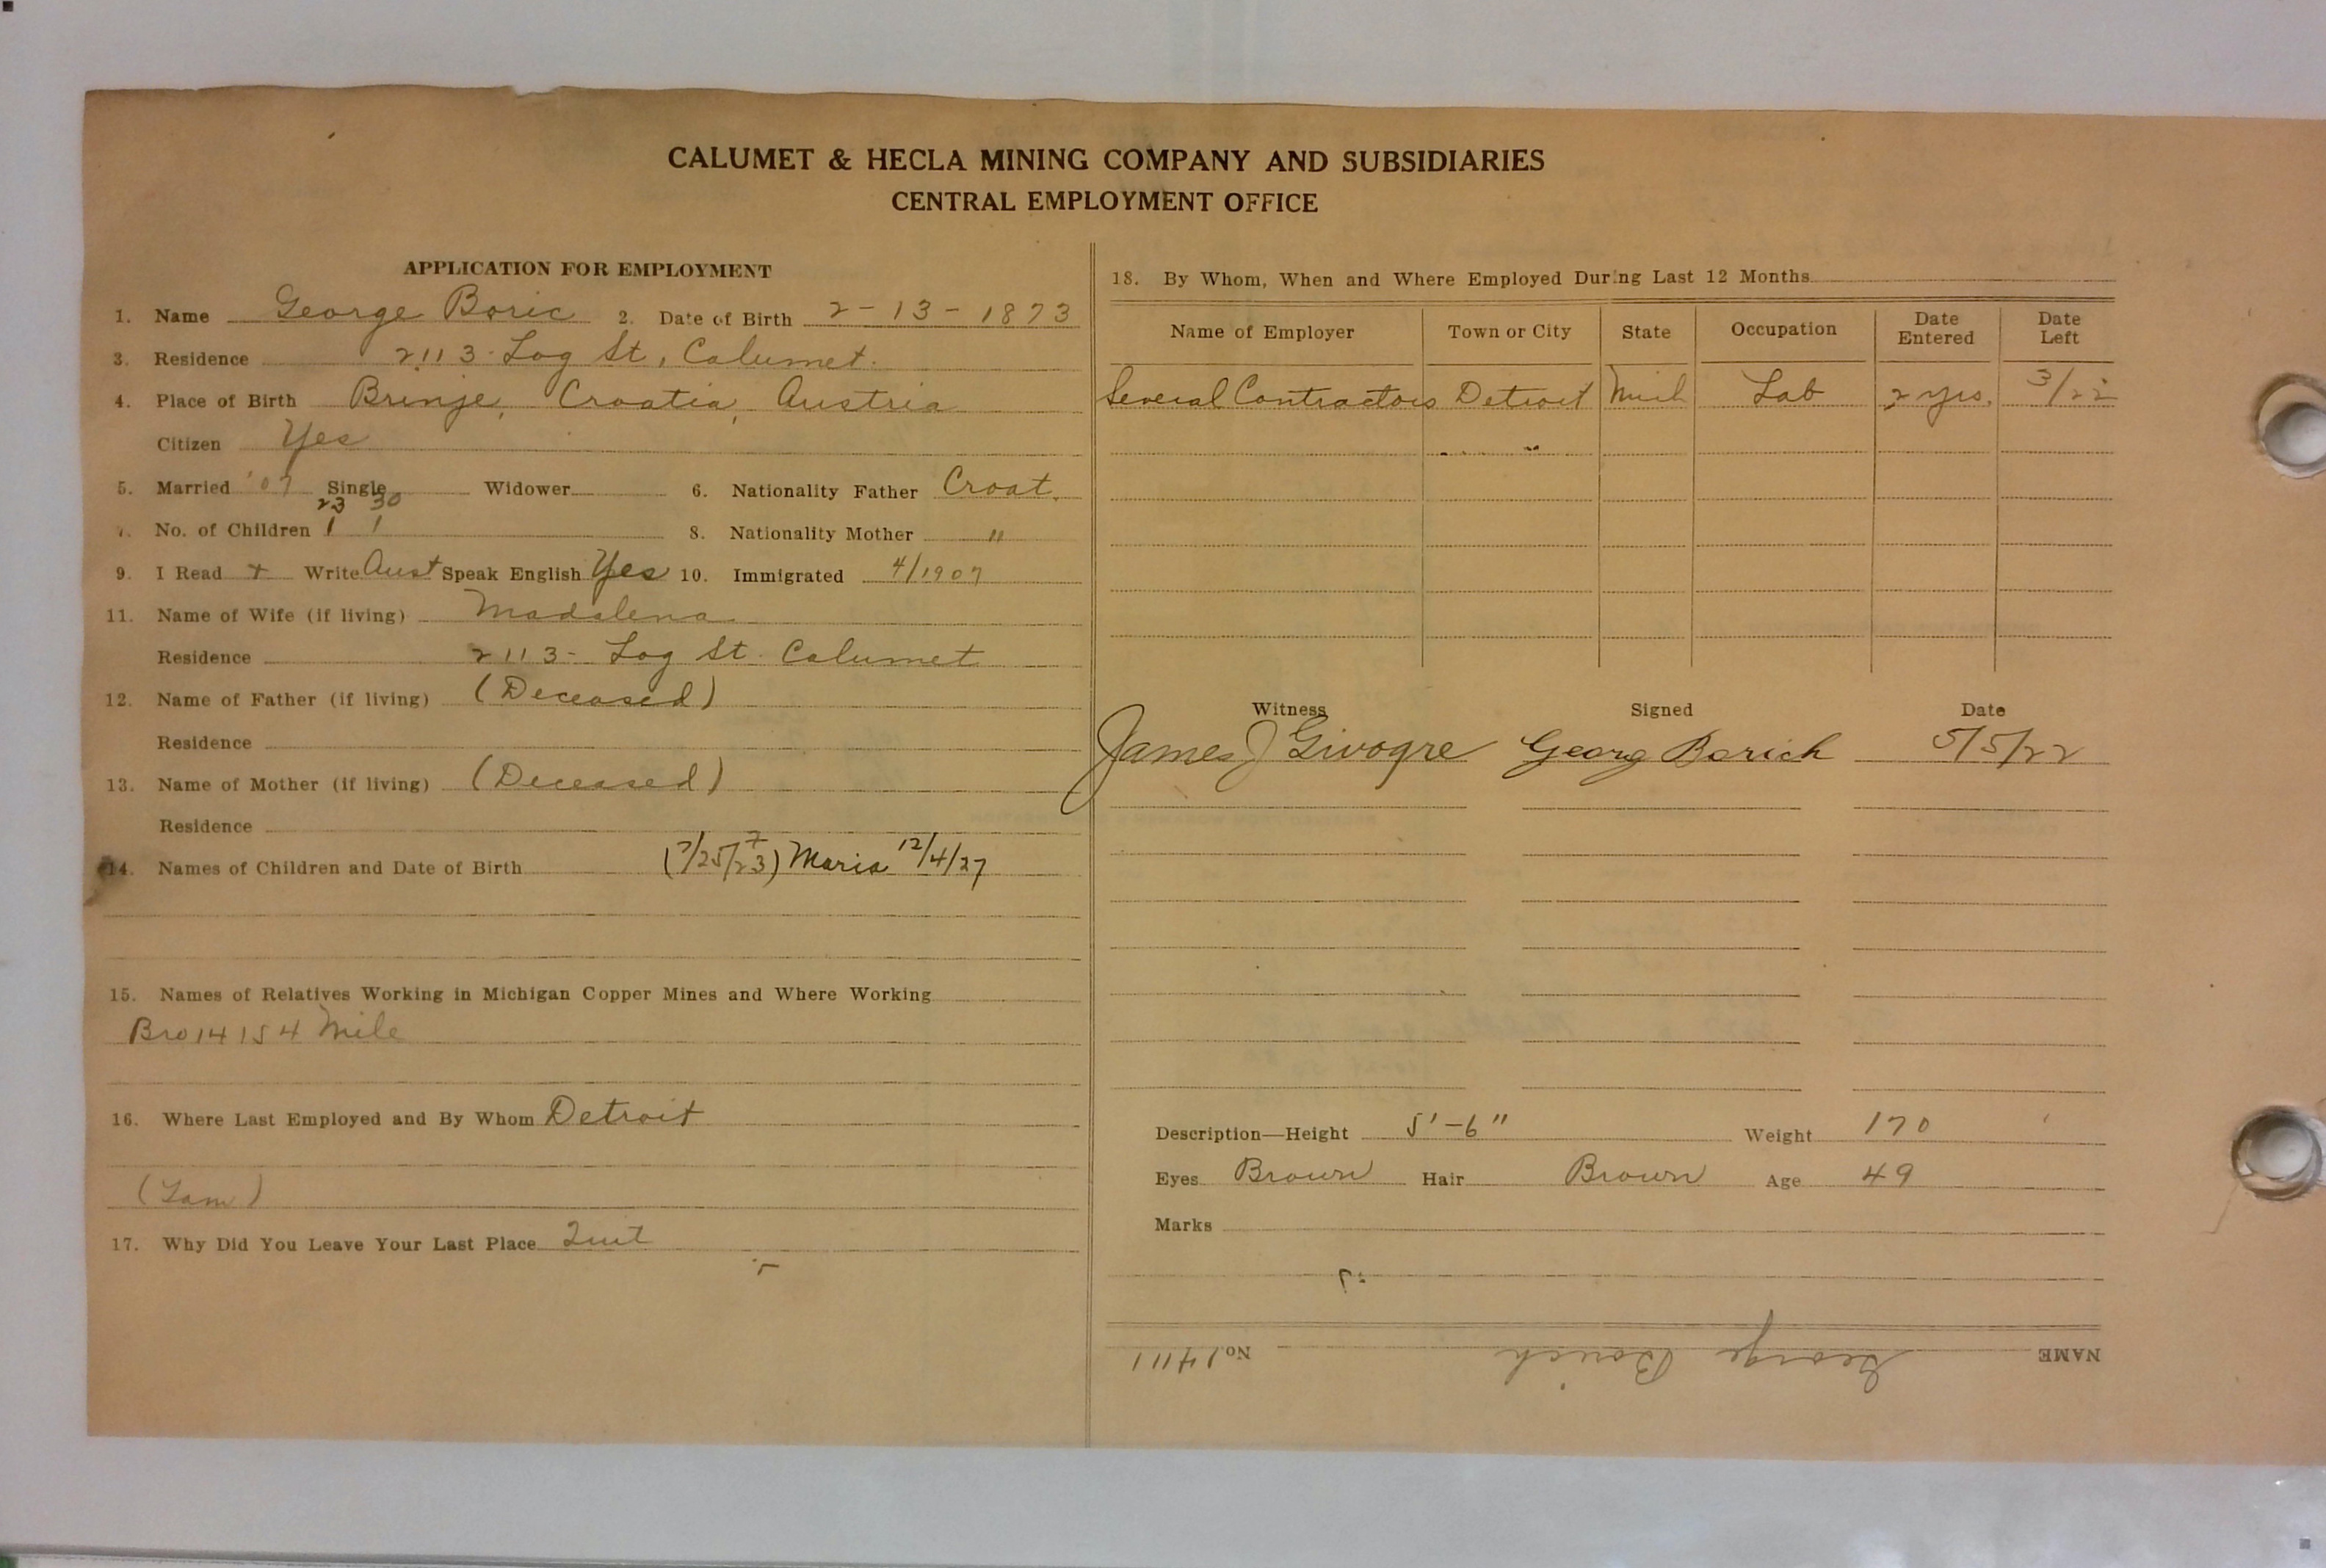 CALUMET & HECLA MINING COMPANY AND SUBSIDIARIES
CENTRAL EMPLOYMENT OFFICE
APPLICATION FOR EMPLOYMENT
1. Name George Boric 2. Date of Birth 2-13-1873
3. Residence 2113 Log St, Calumet.
4. Place of Birth Brinje, Croatia, Austria
Citizen Yes
5. Married '07 Single Widower 6. Nationality Father Croat.
23 30
7. No. of Children 1 1 8. Nationality Mother "
9. I Read + Write Aust Speak English Yes 10. Immigrated 4/1907
11. Name of Wife (if living) Madalena
Residence 2113- Log St. Calumet
12. Name of Father (if living) (Deceased)
Residence
13. Name of Mother (if living) (Deceased)
Residence
14. Names of Children and Date of Birth (7/25/23) Maria 12/4/27
15. Names of Relatives Working in Michigan Copper Mines and Where Working
Bro 14154 Mile
16. Where Last Employed and By Whom Detroit
17. Why Did You Leave Your Last Place Quit
18. By Whom, When and Where Employed During Last 12 Months
Name of Employer Town or City State Occupation Date Entered Date Left
Several Contractors Detroit Mich Lab 2 yrs. 3/22
Witness Signed Date
James J Givogre Georg Borich 5/5/22
Description—Height 5'-6" Weight 170
Eyes Brown Hair Brown Age 49
Marks
NAME George Borich No. 14111